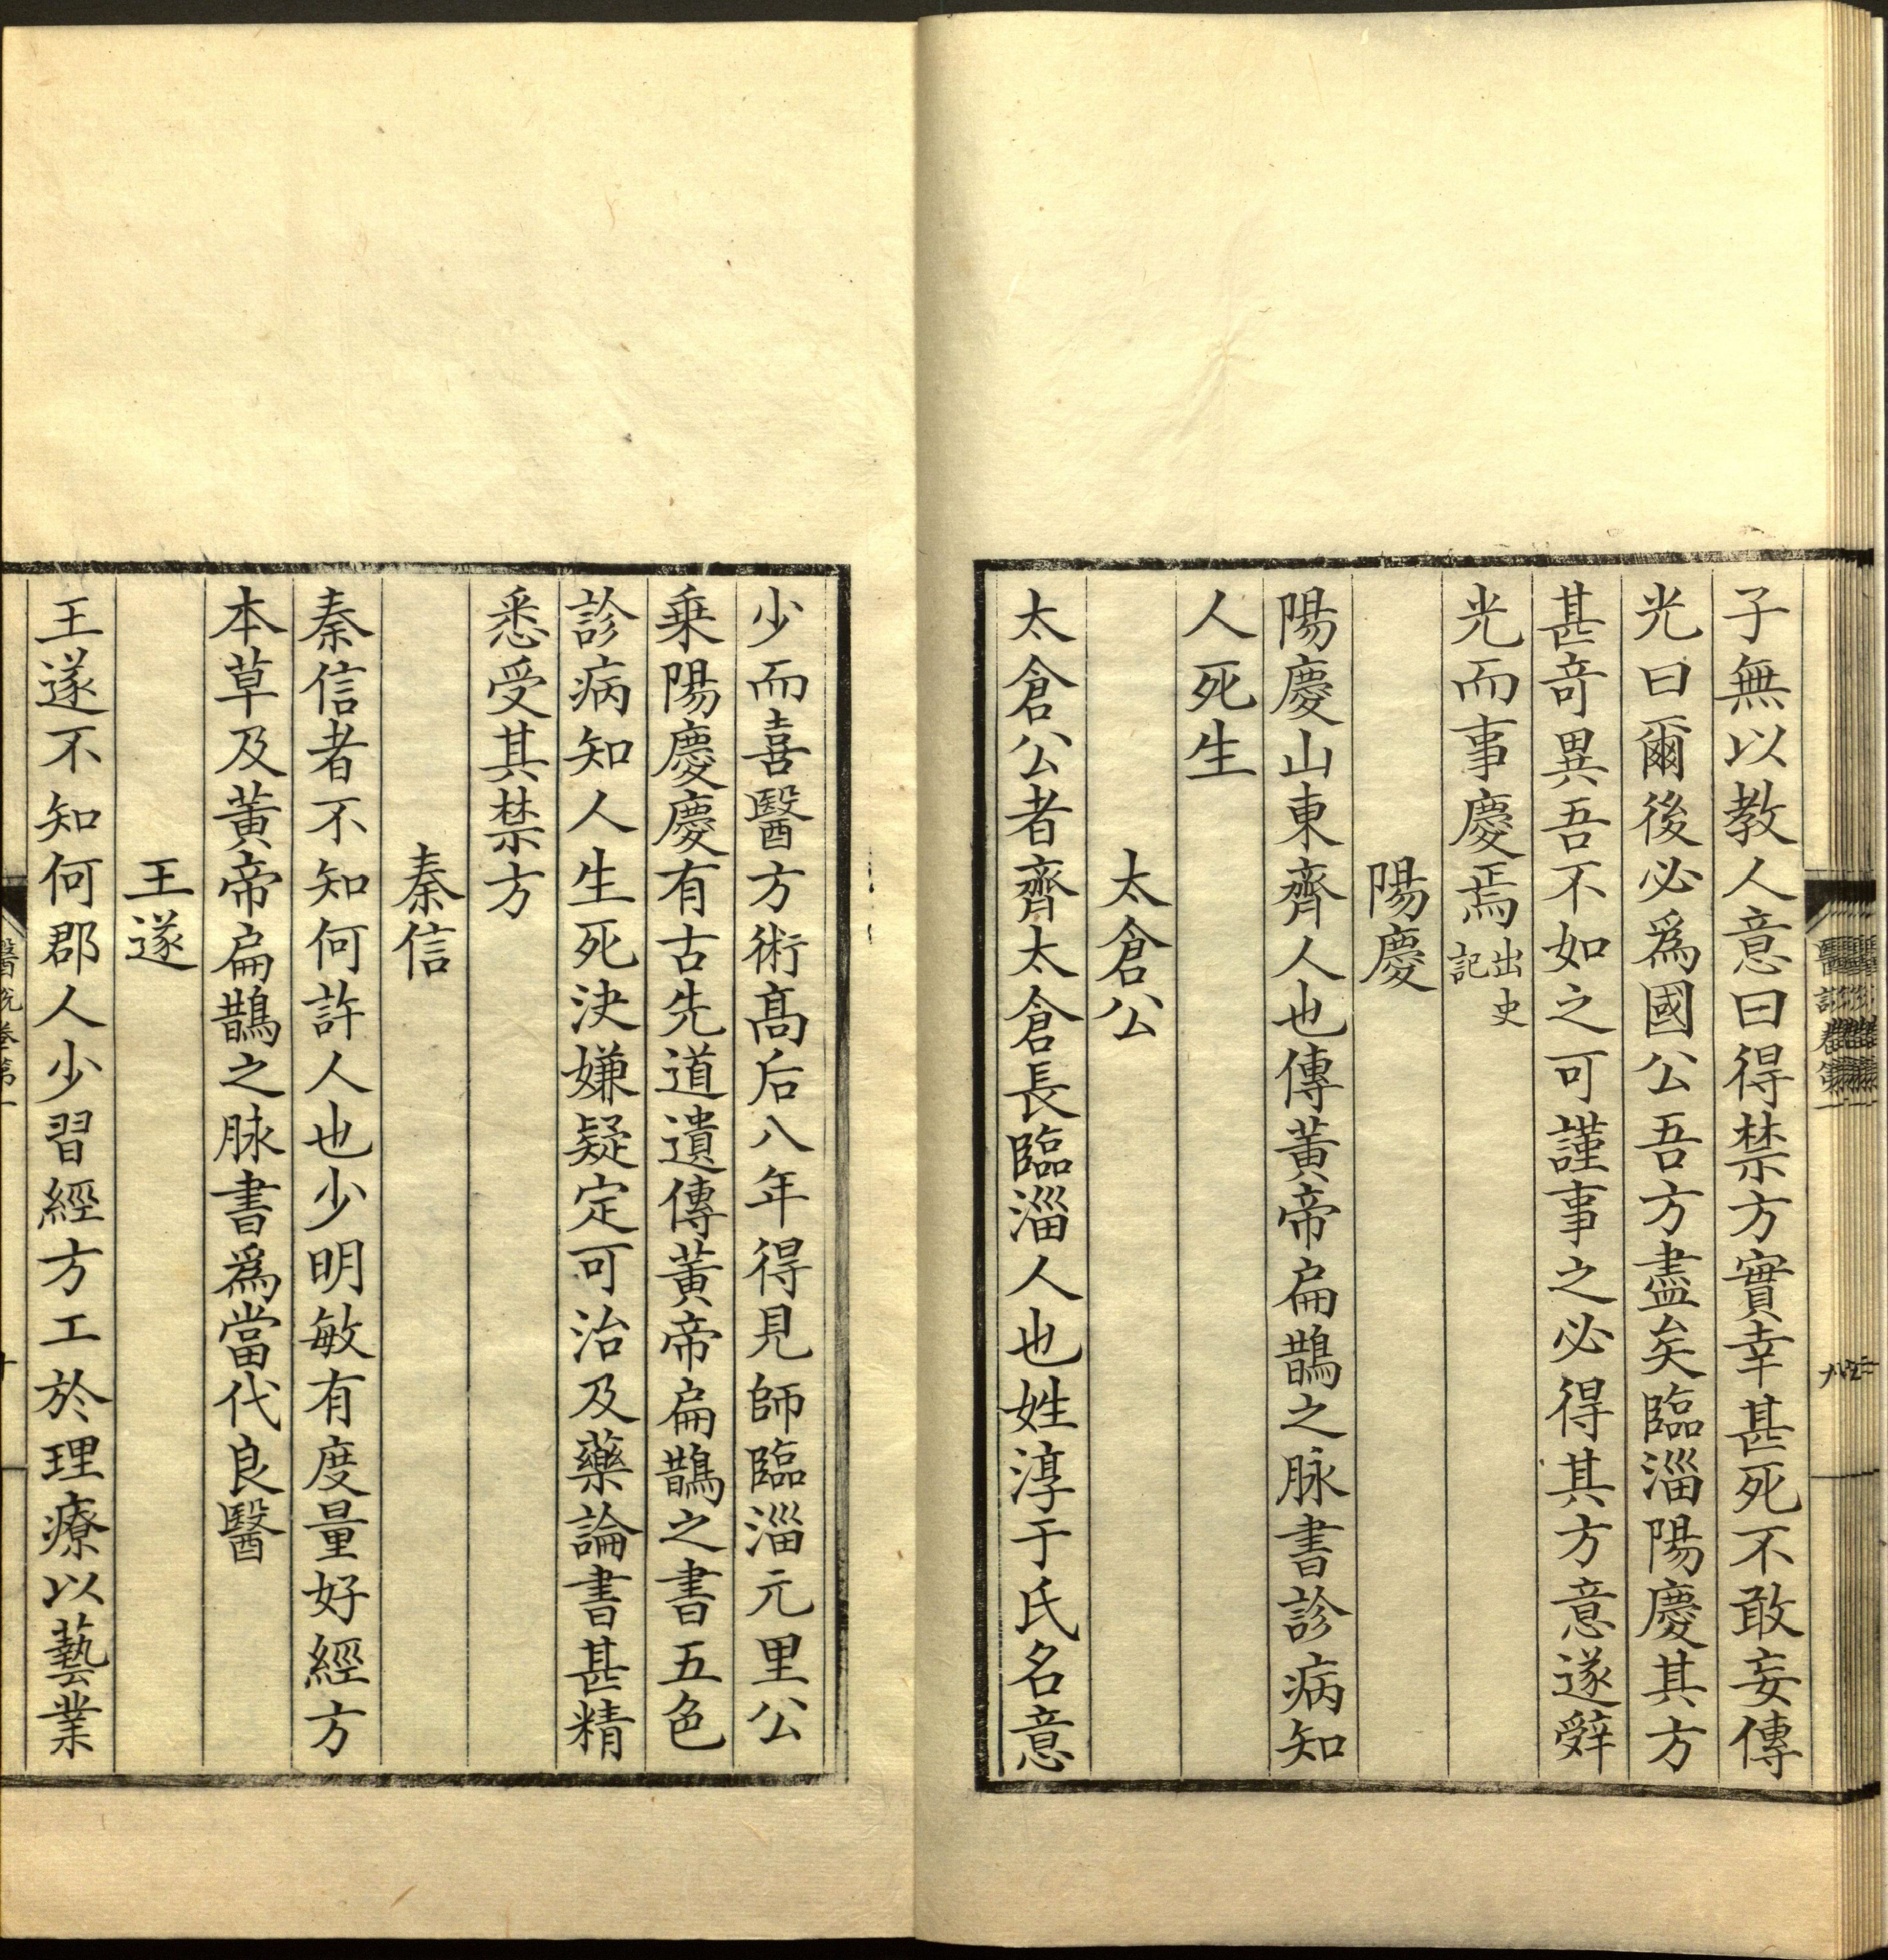 子無以教人意曰得禁方實幸甚死不敢妄傳
光曰爾後必爲國公吾方盡矣臨淄陽慶其方
甚奇異吾不如之可謹事之必得其方意遂辤
光而事慶焉出史記
陽慶
陽慶山東齊人也傳黃帝扁鵲之脉書診病知
人死生
太倉公
太倉公者齊太倉長臨淄人也姓淳于氏名意
少而喜醫方術髙后八年得見師臨淄元里公
乗陽慶慶有古先道遺傳黃帝扁鵲之書五色
診病知人生死决嫌疑定可治及藥論書甚精
悉受其禁方
秦信
秦信者不知何許人也少明敏有度量好經方
本草及黃帝扁鵲之脉書爲當代良醫
王遂
王遂不知何郡人少習經方工於理療以藝業
醫說卷第一